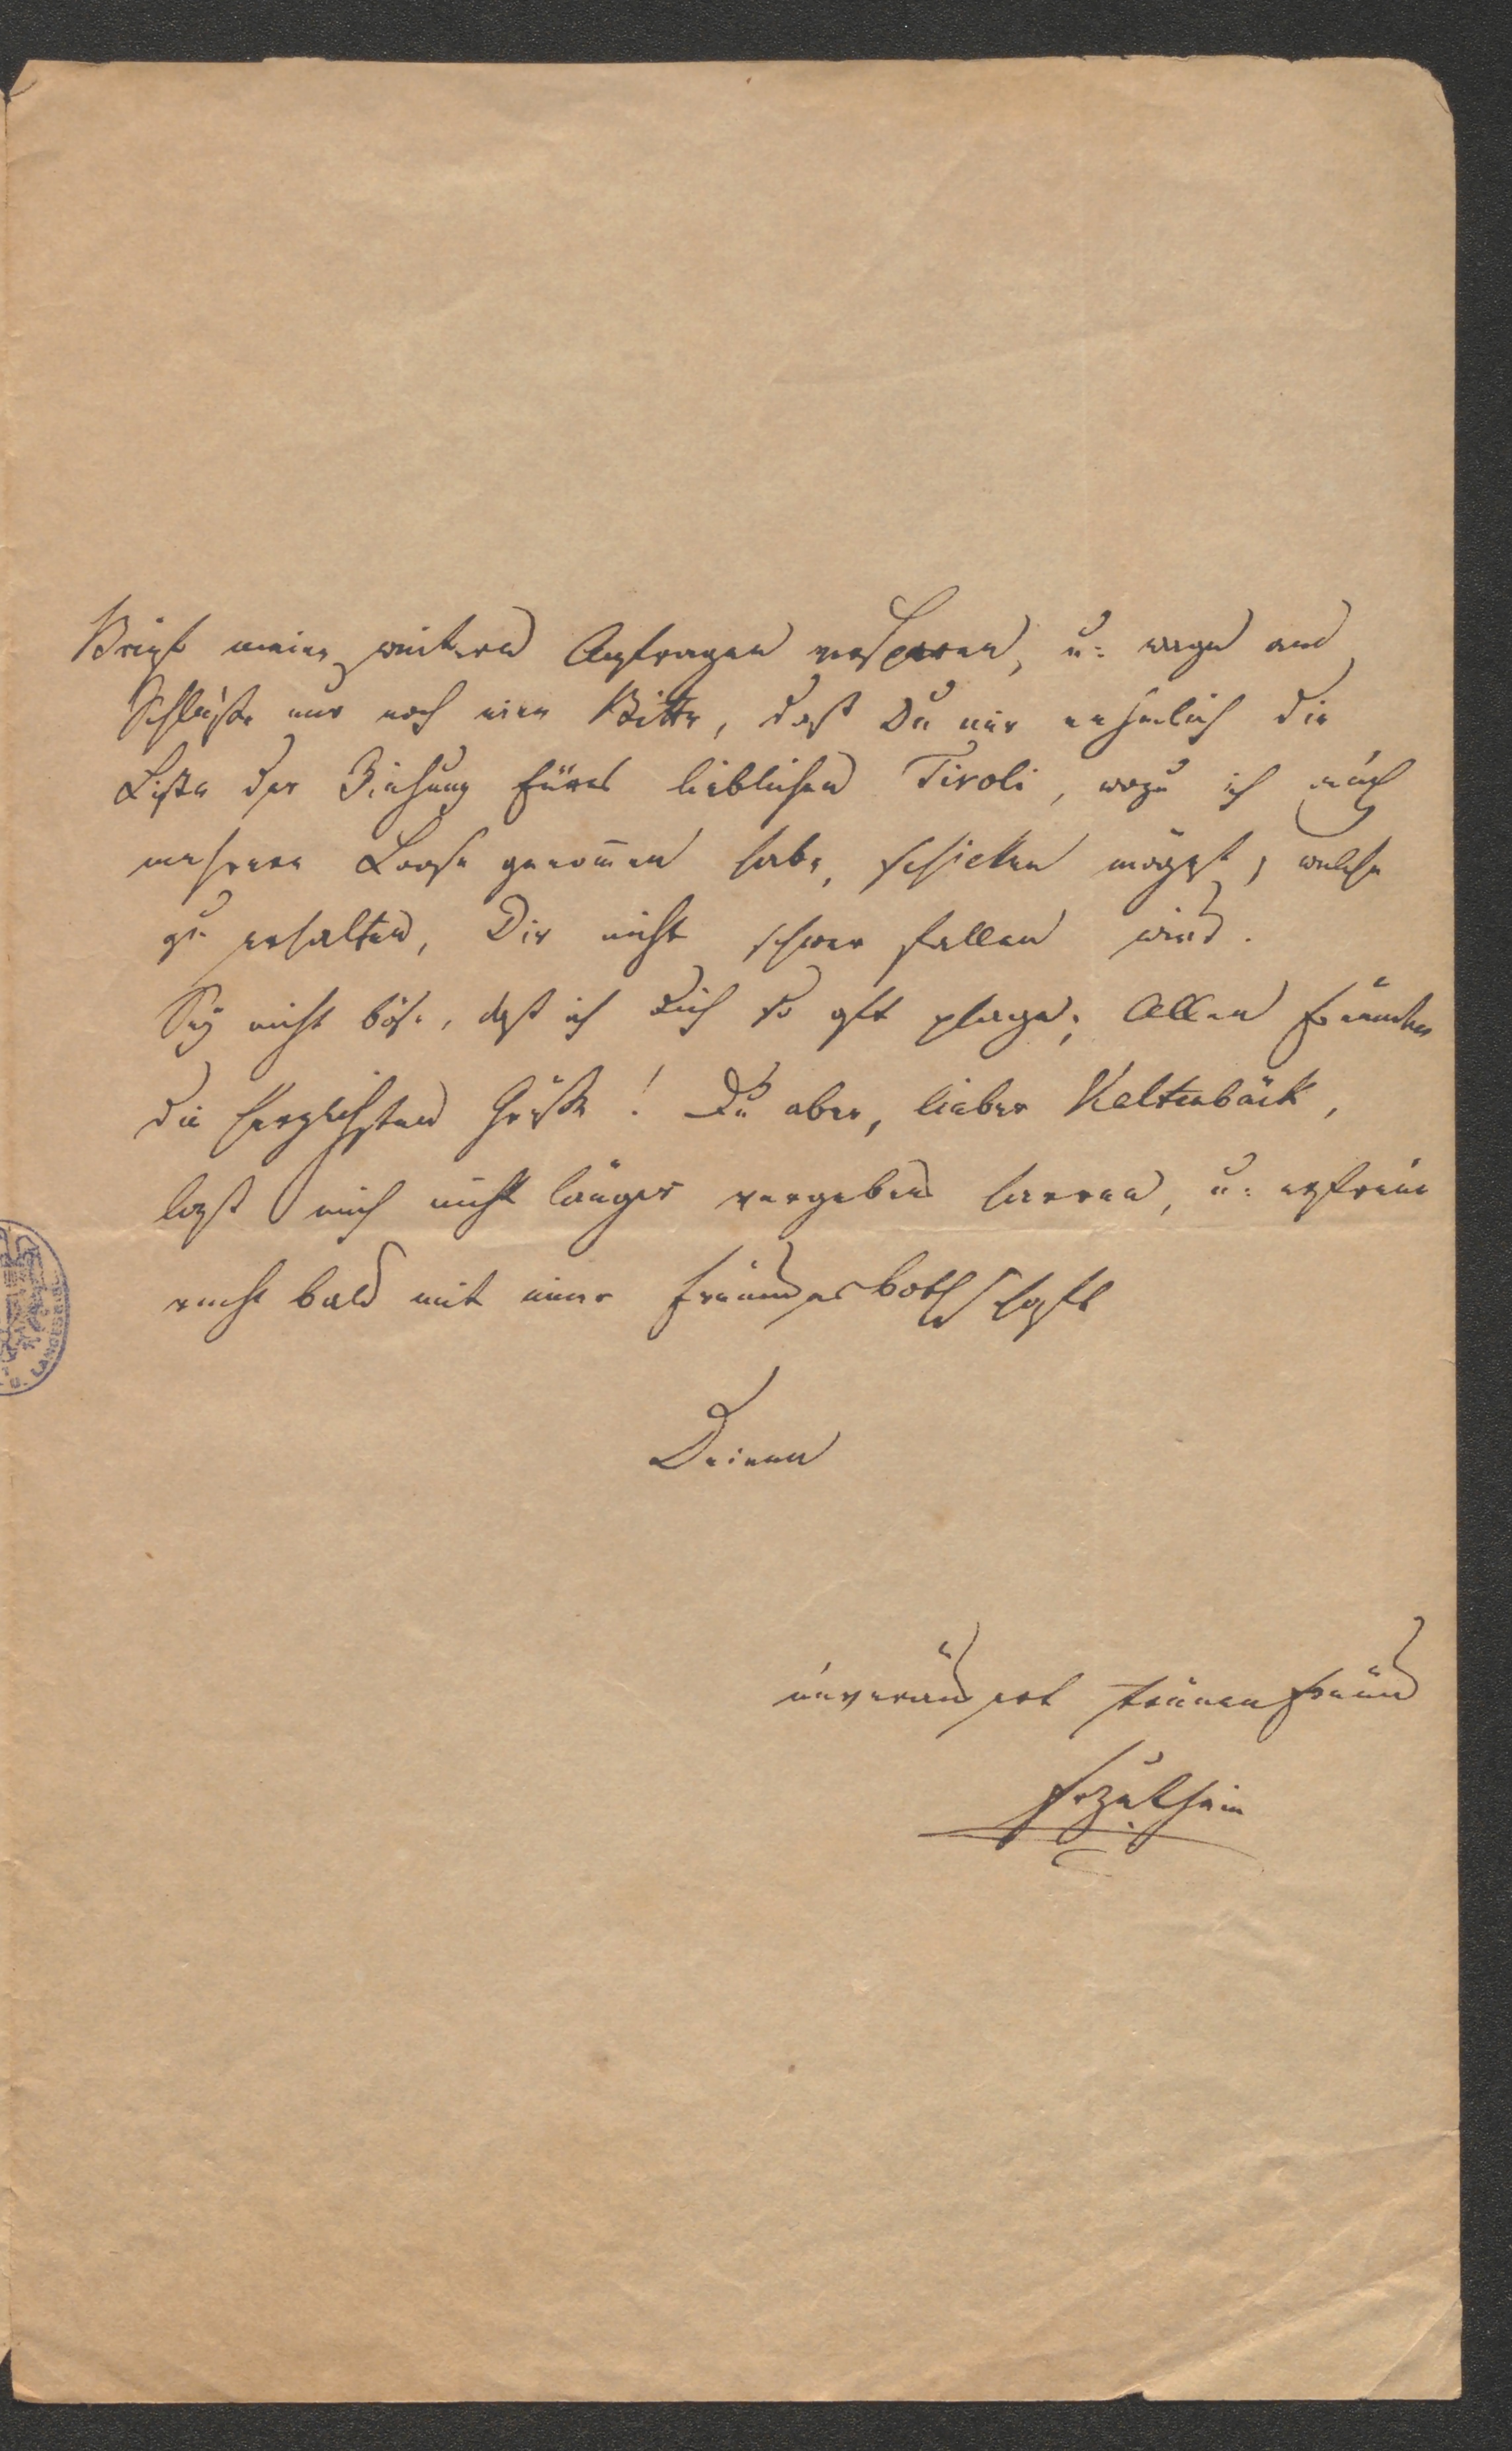 Brief meine weitern Anfragen versparen, u: wage am
Schluße nur noch eine Bitte, daß Du mir nehmlich die
Liste der Ziehung fürs lieblichen Tivoli, wozu ich auch
mehrere Loose genom̄en habe, schicken mögest, welche
zu erhalten, Dir nicht schwer fallen wird.
Sey nicht böse, daß ich Dich so oft plage; Allen Freunden
die herzlichsten Grüße! Du aber, lieber Kaltenbäck,
laß mich nicht länger vergebens harren, u: erfreue
recht bald mit einer Freundesbothschaft
Deinen
unverändert treuen Freund
LANDESBIBL